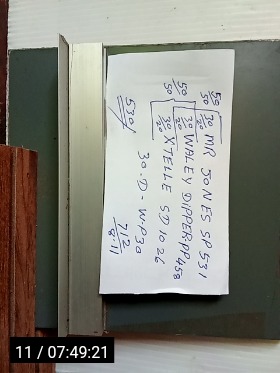 50/50 30/20 MR JONES SP531
50/50 30/20 WALEY DIPPER PP458
30/20 XTELLE SD1026
30.D - W.P30
530/
7/2
8.11
11 / 07:49:21